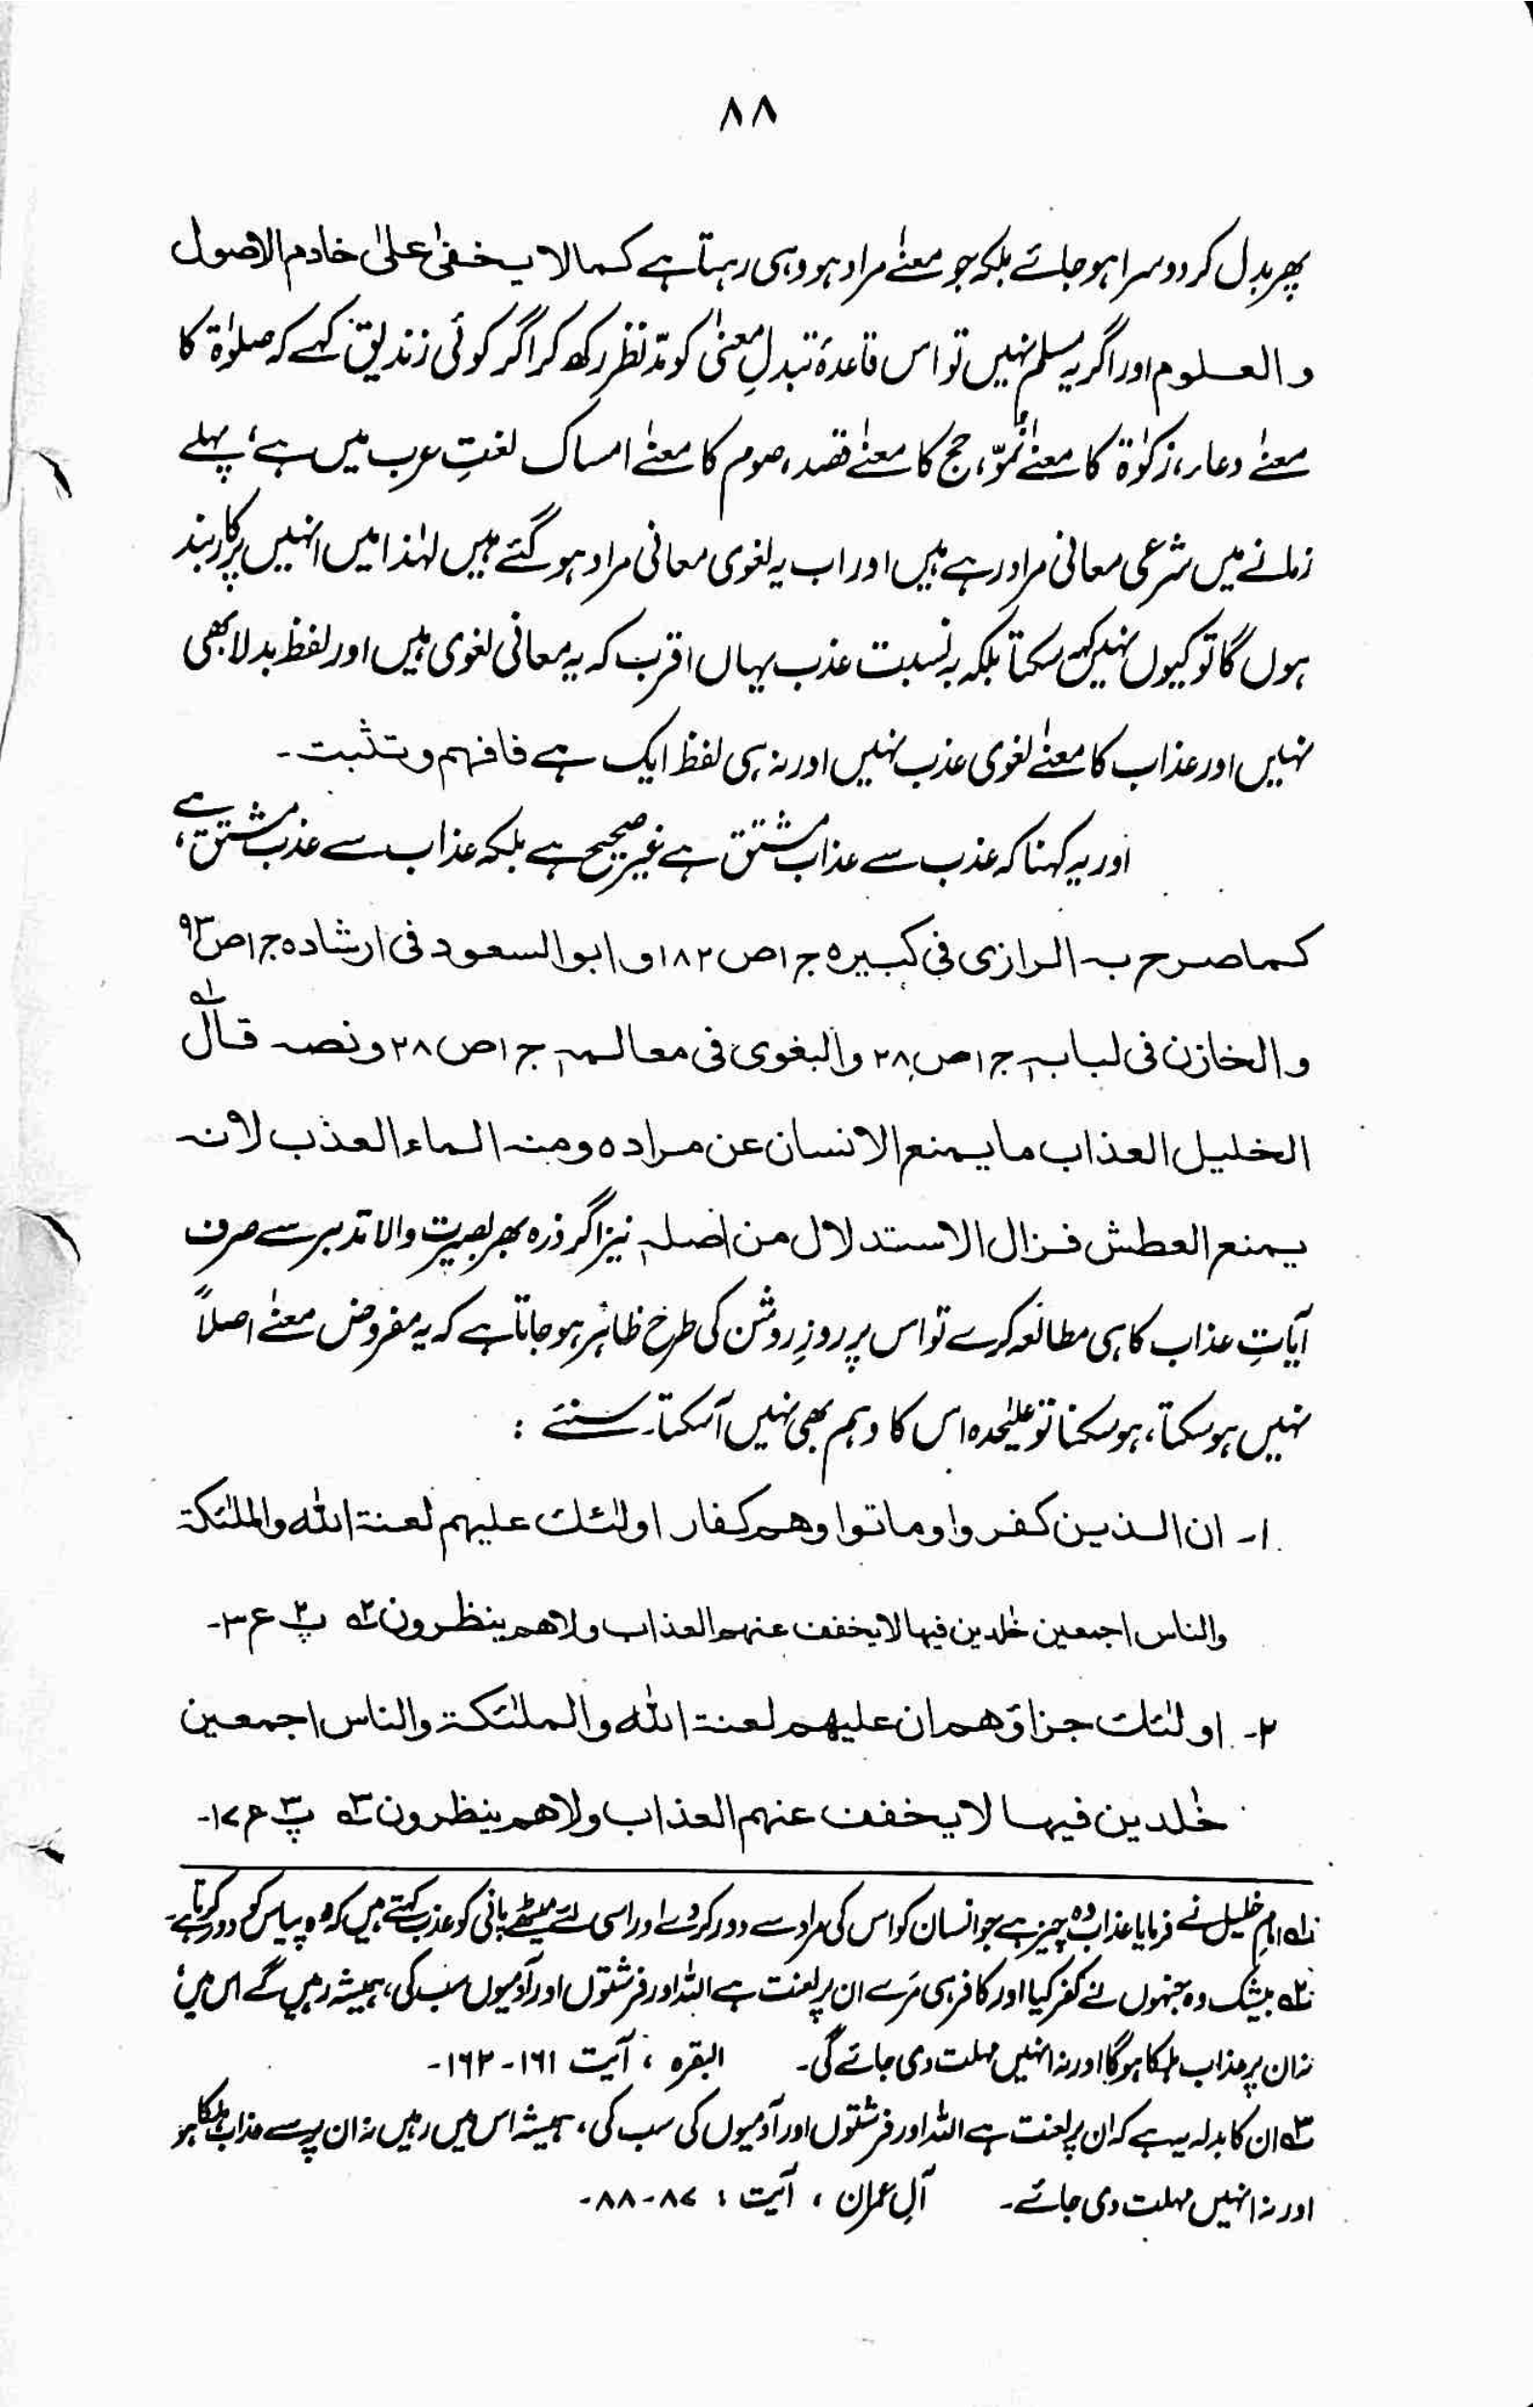 ۸۸
پھر بدل کر دوسرا ہو جائے بلکہ جو معنیٰ مراد ہو وہی رہتا ہے کما لا یخفیٰ علیٰ خادم الاصول
و العلوم اور اگر یہ مسلم نہیں تو اس قاعدۂ تبدلِ معنیٰ کو مدّنظر رکھ کر اگر کوئی زندیق کہے کہ صلوٰۃ کا
معنیٰ دعاء، زکوٰۃ کا معنیٰ نُموّ، حج کا معنیٰ قصد، صوم کا معنیٰ امساک لغتِ عرب میں ہے، پہلے
زمانے میں شرعی معانی مراد رہے ہیں اور اب یہ لغوی معانی مراد ہو گئے ہیں لہٰذا میں انہیں پر کاربند
ہوں گا تو کیوں نہیں کہہ سکتا بلکہ بہ نسبت عذب یہاں اقرب کہ یہ معانی لغوی ہیں اور لفظ بدلا بھی
نہیں اور عذاب کا معنیٰ لغوی عذب نہیں اور نہ ہی لفظ ایک ہے فافہم و تثبت۔
اور یہ کہنا کہ عذب سے عذاب مشتق ہے غیر صحیح ہے بلکہ عذاب سے عذب مشتق ہے،
کما صرح بہ الرازی فی کبیرہ ج ۱ ص ۱۸۲ و ابو السعود فی ارشادہ ج ۱ ص ۹۳
و الخازن فی لبابہ ج ۱ ص ۲۸ والبغوی فی معالمہ ج ۱ ص ۲۸ ونصہ قال لہ
الخلیل العذاب ما یمنع الانسان عن مرادہ ومنہ الماء العذب لانہ
یمنع العطش فزال الاستدلال من اصلہ نیز اگر ذرہ بھر بصیرت والا تدبر سے صرف
آیاتِ عذاب کا ہی مطالعہ کرے تو اس پر روزِ روشن کی طرح ظاہر ہو جاتا ہے کہ یہ مفروض معنیٰ اصلاً
نہیں ہو سکتا، ہو سکنا تو علیٰحدہ اس کا وہم بھی نہیں آ سکتا۔ سنئے :
۱۔ ان الذین کفروا وماتوا وھم کفار اولٰئک علیہم لعنۃ اللہ والملٰئکۃ
والناس اجمعین خٰلدین فیہا لا یخفف عنہم العذاب ولا ھم ینظرون ۲ پ ۲ ع ۳۔
۲۔ اولٰئک جزاؤھم ان علیھم لعنۃ اللہ والملٰئکۃ والناس اجمعین
خٰلدین فیہا لا یخفف عنہم العذاب ولا ھم ینظرون ۳ پ ۳ ع ۱۷۔
۱ امام خلیل نے فرمایا عذاب وہ چیز ہے جو انسان کو اس کی مراد سے دور کر دے اور اسی لئے میٹھے پانی کو عذب کہتے ہیں کہ وہ پیاس کو دور کرتا ہے۔
۲ بیشک وہ جنہوں نے کفر کیا اور کافر ہی مرے ان پر لعنت ہے اللہ اور فرشتوں اور آدمیوں سب کی، ہمیشہ رہیں گے اس میں،
نہ ان پر عذاب ہلکا ہو گا اور نہ انہیں مہلت دی جائے گی۔ البقرہ ، آیت ۱۶۱-۱۶۲۔
۳ ان کا بدلہ یہ ہے کہ ان پر لعنت ہے اللہ اور فرشتوں اور آدمیوں کی سب کی، ہمیشہ اس میں رہیں نہ ان پر سے عذاب ہلکا ہو
اور نہ انہیں مہلت دی جائے۔ آلِ عمران ، آیت : ۸۷-۸۸۔